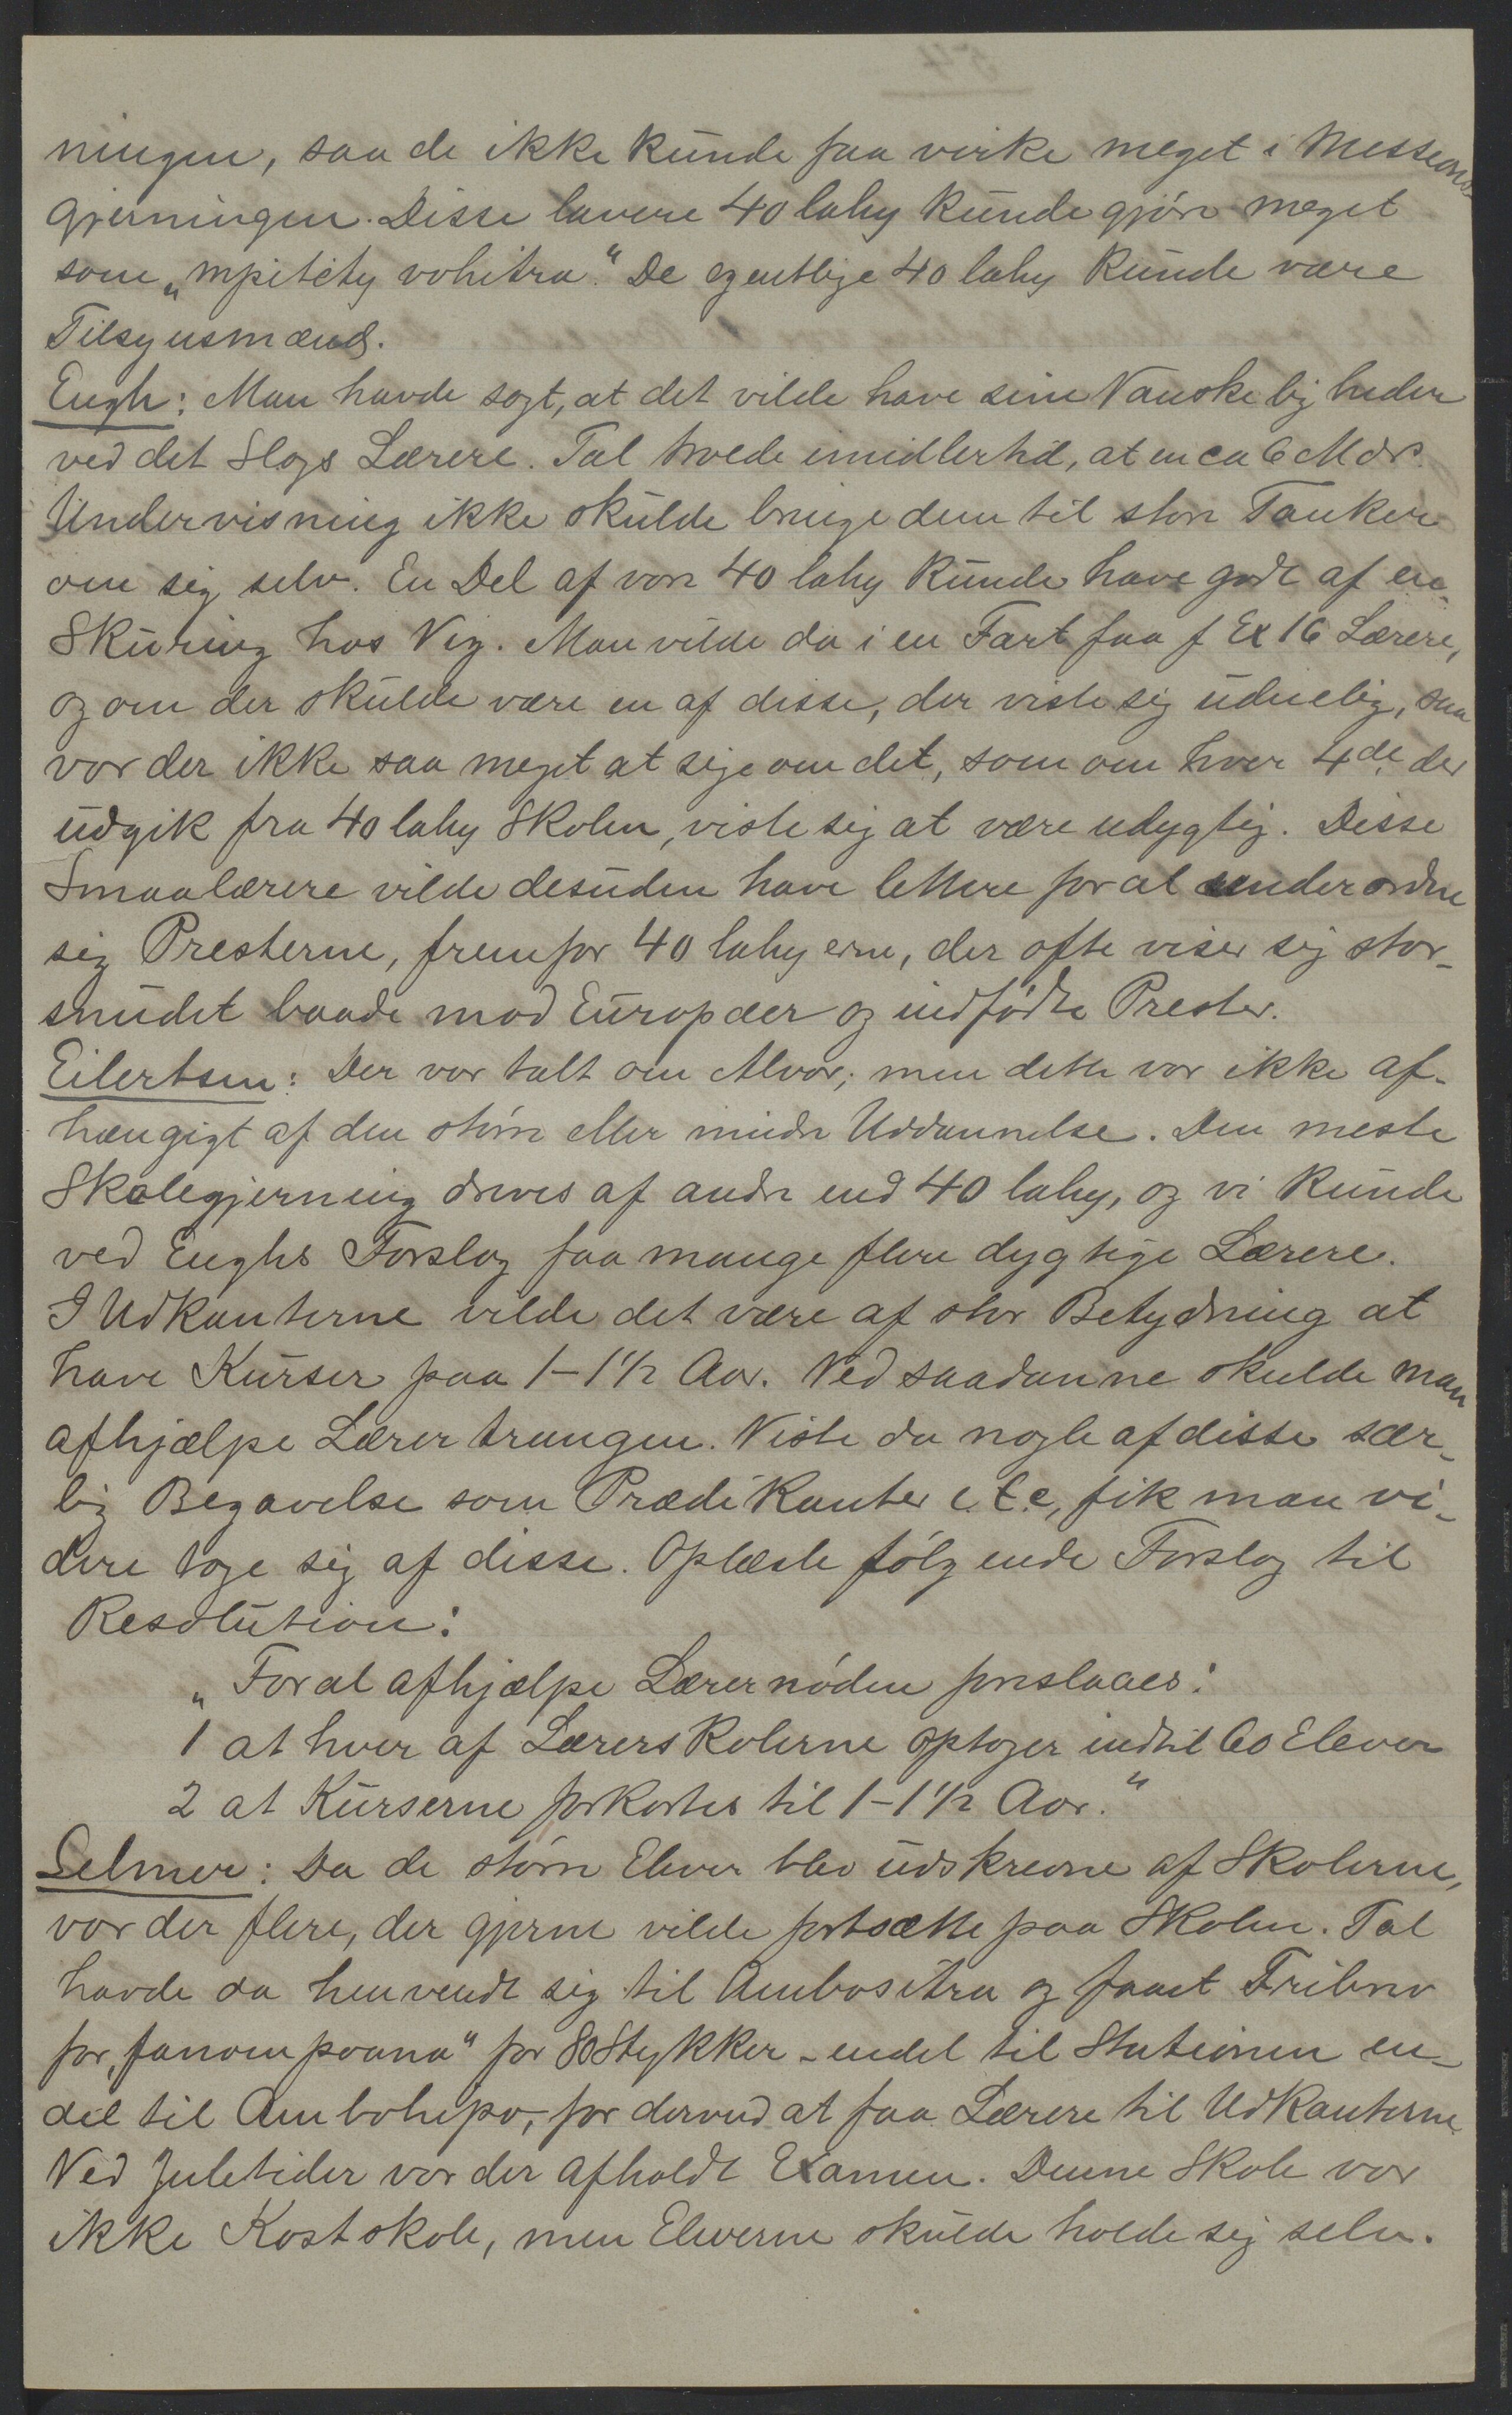 ningen, saa de ikke kunde faa virke meget i Missions
gjerningen. Disse lavere 40 lahy kunde gjøre meget
som „mpitety vohitra“. De egentlige 40 lahy kunde være
Tilsynsmænd.
Engh: Man havde sagt, at det vilde have sine Vanskeligheder
ved det Slags Lærere. Tal. troede imidlertid, at en ca 6 Mdrs.
Undervisning ikke skulde bringe dem til store Tanker
om sig selv. En Del af vore 40 lahy kunde have godt af en
Skuring hos Vig. Man vilde da i en Fart faa f Ex 16 Lærere,
og om der skulde være en af disse, der viste sig uduelig, saa
var der ikke saa meget at sige om det, som om hver 4de, der
udgik fra 40 lahy Skolen, viste sig at være udygtig. Disse
Smaalærere vilde desuden have lettere for at underordne
sig Presterne, fremfor 40 lahyerne, der ofte viser sig stor-
snudet baade mod Europæer og indfødte Prester.
Eilertsen: Der var talt om Alvor; men dette var ikke af-
hængigt af den større eller mindre Uddannelse. Den meste
Skolegjerning drives af andre end 40 lahy, og vi kunde
ved Enghs Forslag faa mange flere dygtige Lærere.
I Udkanterne vilde det være af stor Betydning at
have Kurser paa 1-1½ Aar. Ved saadanne skulde man
afhjælpe Lærertrangen. Viste da nogle af disse sær-
lig Begavelse som Prædikanter etc, fik man vi-
dere tage sig af disse. Oplæste følgende Forslag til
Resolution:
„For at afhjælpe Lærernøden foreslaaes:
1 at hver af Lærerskolerne optager indtil 60 Elever
2 at Kurserne forkortes til 1-1½ Aar.“
Selmer: Da de større Elever blev udskrevne af Skolerne,
var der flere, der gjerne vilde fortsætte paa Skolen. Tal
havde da henvendt sig til Ambositra og faaet Fribrev
for „fanompoana“ for 80 Stykker - endel til Stationen en-
del til Ambohipo, for derved at faa Lærere til Udkanterne
Ved Juletider var der afholdt Examen. Denne Skole var
ikke Kostskole, men Eleverne skulde holde sig selv.